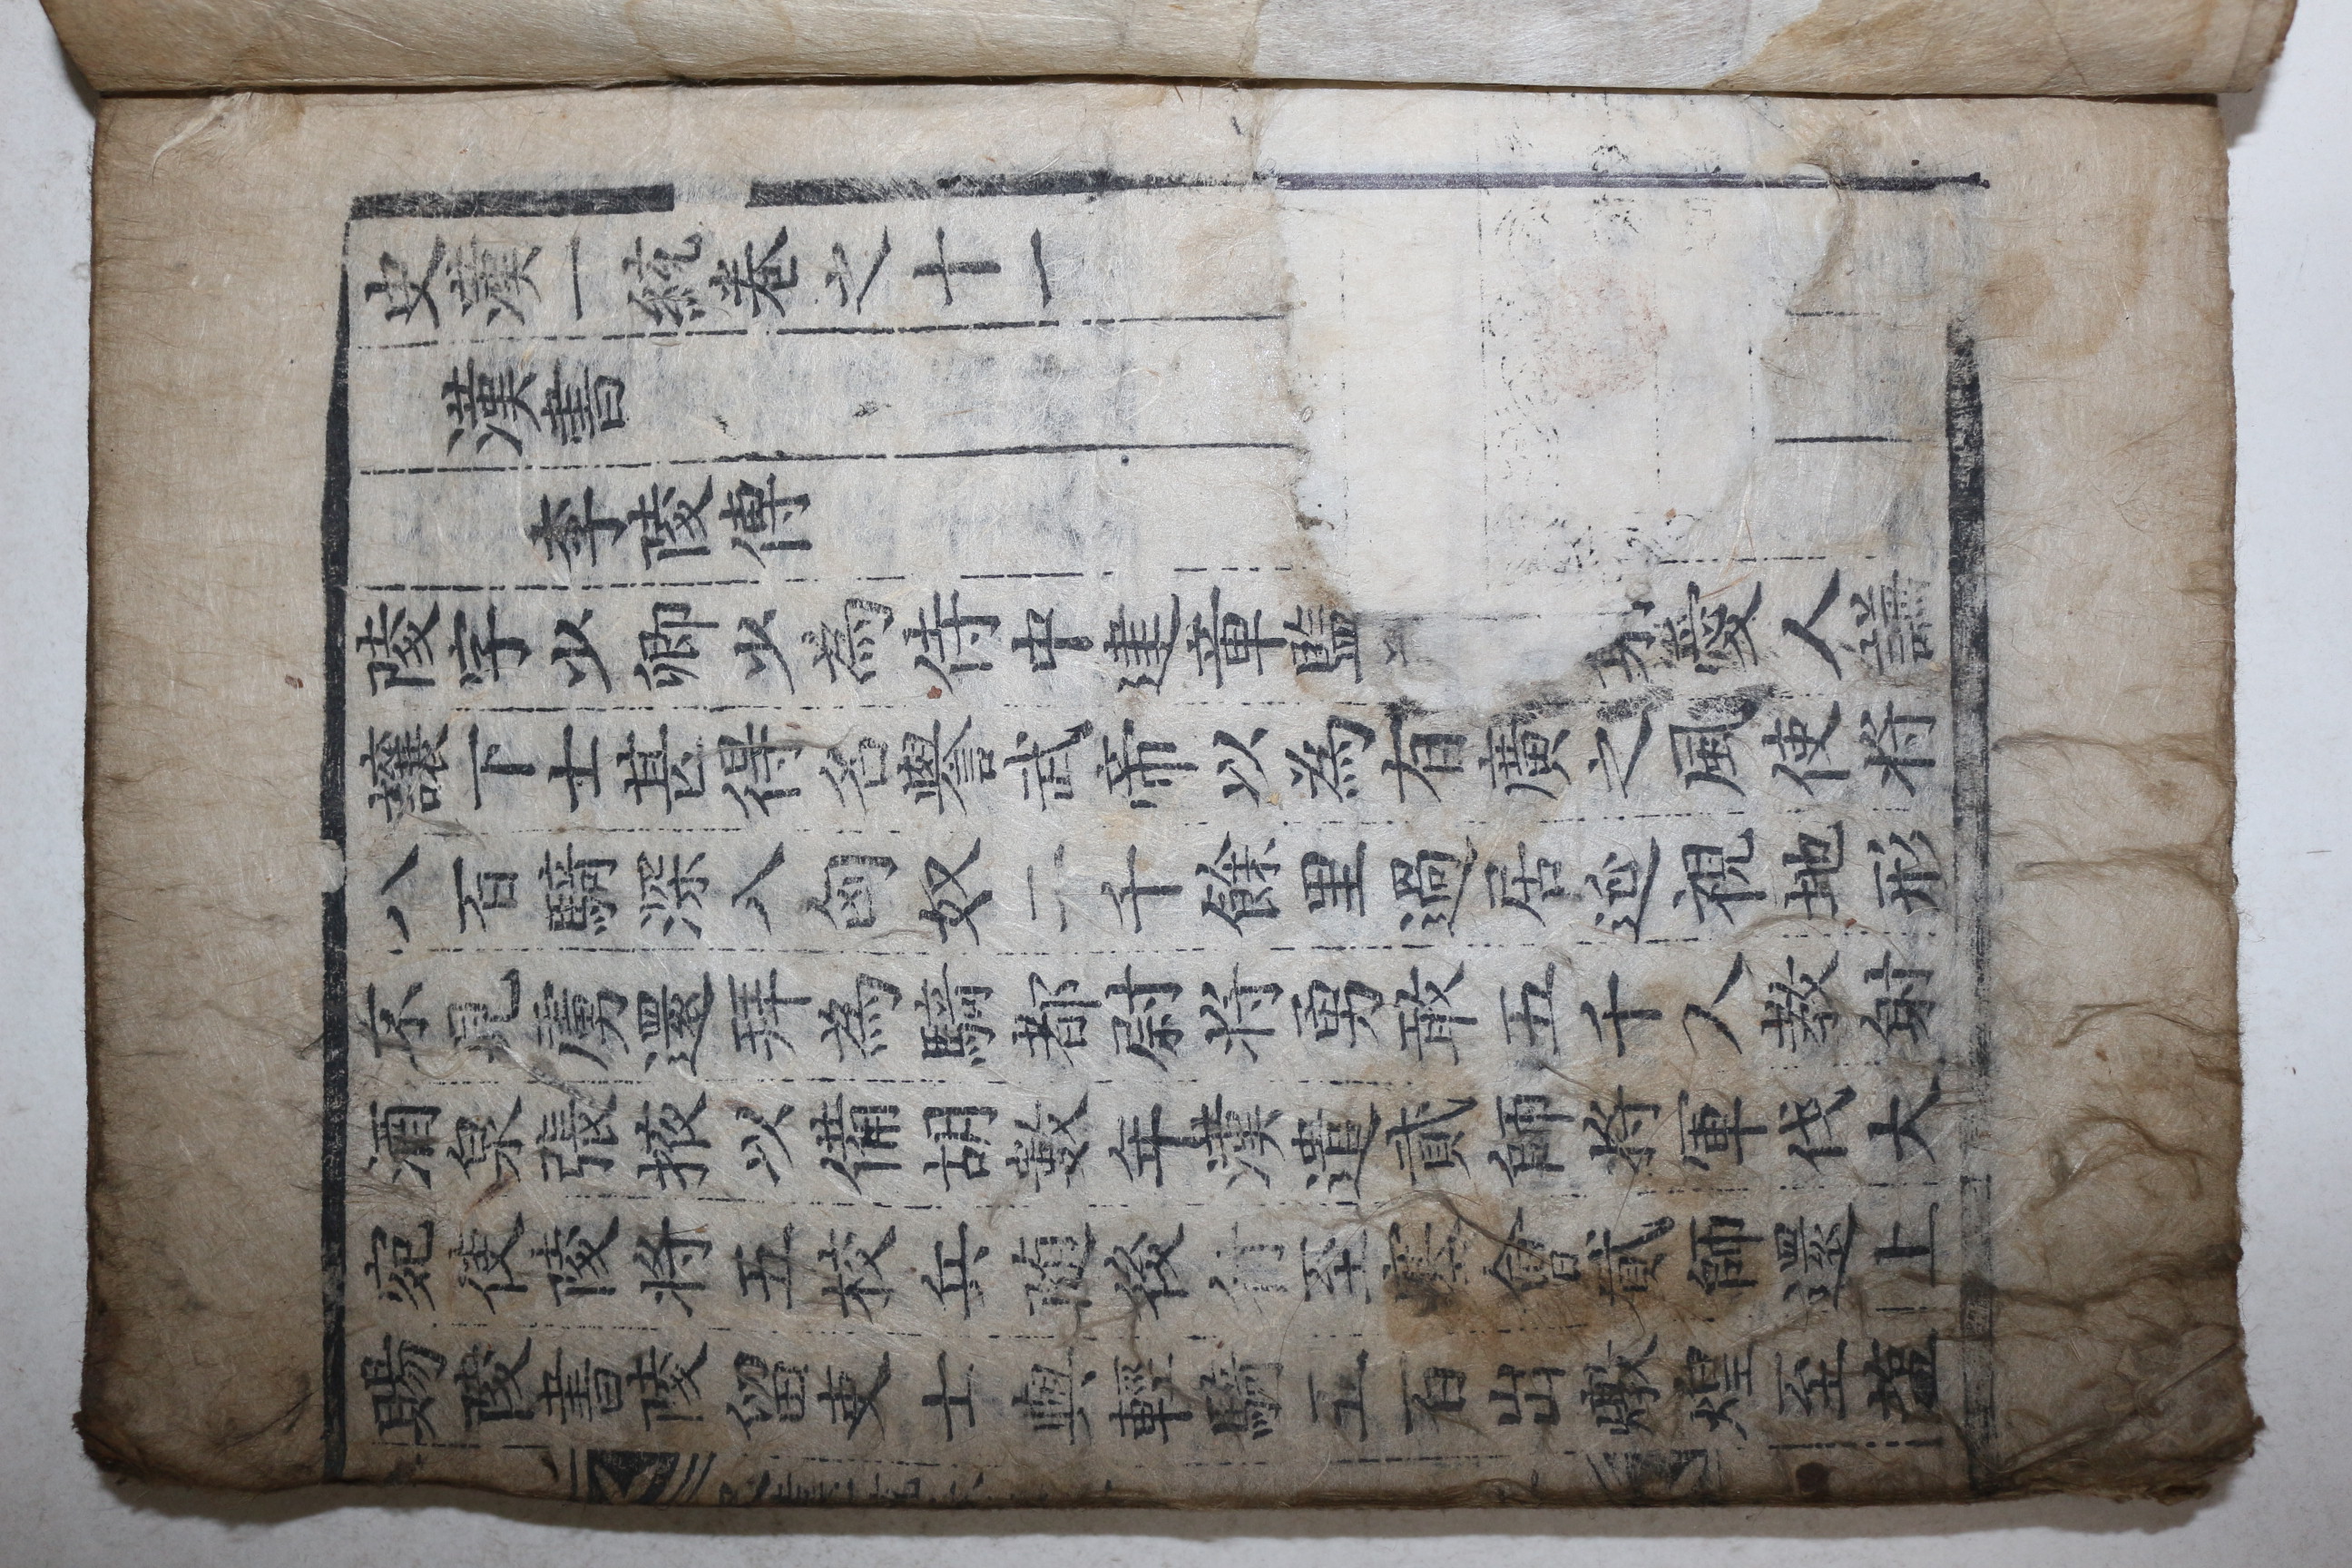 史漢一統卷之十一
漢書
李陵傳
陵字少卿少為侍中建章監愛人謙
讓下士甚得名譽武帝以為有廣之風使將
八百騎深入匈奴二千餘里過居延視地形
不見虜還拜為騎都尉將勇敢五千人教射
酒泉張掖以備胡數年漢遣貳師將軍伐大
宛使陵將五校兵随後行至塞會貳師還上
賜陵書陵留吏士與輕騎五百出燉煌至